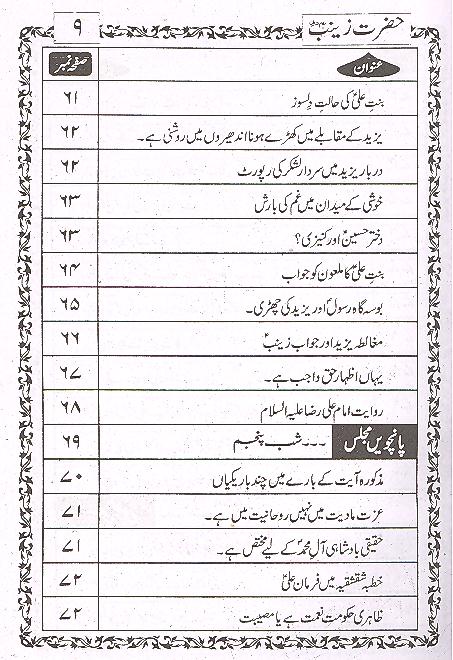 حضرت زینبؑ ۹
عنوان صفحہ نمبر
بنتِ علیؑ کی حالتِ دلسوز ۶۱
یزید کے مقابلے میں کھڑے ہونا اندھیروں میں روشنی ہے۔ ۶۲
دربار یزید میں سردار لشکر کی رپورٹ ۶۲
خوشی کے میدان میں غم کی بارش ۶۳
دختر حسینؑ اور کنیزی؟ ۶۳
بنتِ علیؑ کا ملعون کو جواب ۶۴
بوسہ گاہ رسولؐ اور یزید کی چھڑی۔ ۶۵
مغالطہ یزید اور جواب زینبؑ ۶۶
یہاں اظہار حق واجب ہے۔ ۶۷
روایت امام علی رضا علیہ السلام ۶۸
پانچویں مجلس ۔۔۔ شب پنجم ۶۹
مذکورہ آیت کے بارے میں چند باریکیاں ۷۰
عزت مادیت میں نہیں روحانیت میں ہے۔ ۷۱
حقیقی بادشاہی آل محمدؐ کے لیے مختص ہے۔ ۷۱
خطبہ شقشقیہ میں فرمان علیؑ ۷۲
ظاہری حکومت نعمت ہے یا مصیبت ۷۲